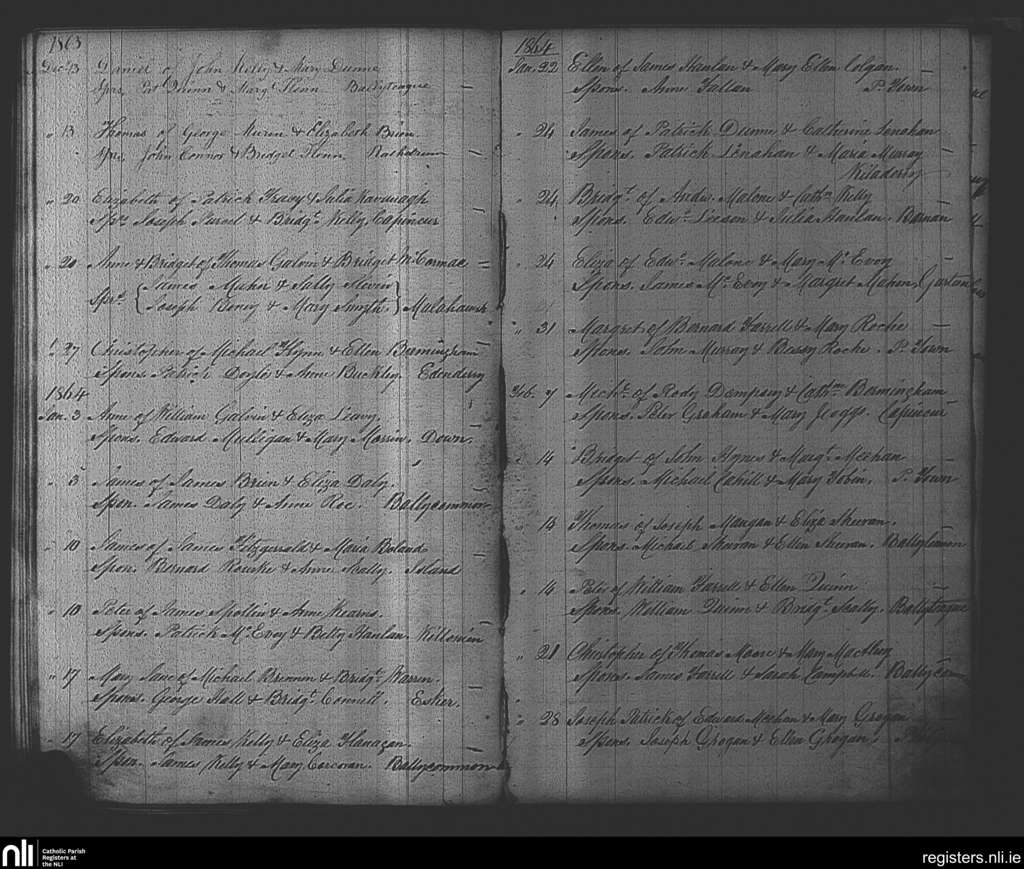 1863
Dec 13 Daniel of John Kelly & Mary Dunne
Sprs Pat Dunn & Margt Flenn Ballyteague
" 13 Thomas of George & Elizabeth Brien.
Sprs John Connor & Bridget Flenn.
" 20 Elizabeth of Patrick & Julia Kavanagh
Sprs Joseph & Bridgt Kelly, Capincur
" 20 Anne & Bridget of Thomas Galvin & Bridget McCormac
Sprs. { James Maher & Sally Slevin
Joseph & Mary Smyth }
" 27 Christopher of Michael Flynn & Ellen Bermingham
Spons. Patrick Doyle & Anne Buckley. Edenderry
1864
Jan. 3 Anne of William Galvin & Eliza Leavy.
Spons. Edward Mulligan & Mary Morrin. Down.
" 3 James of James Brien & Eliza Daly.
Spon. James Daly & Anne Roe. Ballycommon
" 10 James of James Fitzgerrald & Maria Boland
Spon. Bernard Rourke & Anne Scally. Island
" 10 Peter of James Spollin & Anne Kearns.
Spons. Patrick McEvoy & Betty Hanlan. Killonin
" 17 Mary Jane of Michael Brennan & Bridgt. Warren.
Spons. George Hall & Bridgt. Connell. Esker.
" 17 Elizabeth of James Kelly & Eliza Flanagan.
Spon. James Kelly & Mary Corcoran. Ballycommon
1864
Jan. 22 Ellen of James Hanlan & Mary Ellen Colgan.
Spons. Anne Fallan P. Town
" 24 James of Patrick Dunne & Catherine Lenahan
Spons. Patrick Lenahan & Maria Murray
Kiladerry
" 24 Bridgt. of Andw. Malone & Cathe. Kelly
Spons. Edwd. & Julia Hanlan. Barnan
" 24 Eliza of Edwd. Malone & Mary McEvoy
Spons. James McEvoy & Margret Mahon,
" 31 Margret of Bernard Farrell & Mary Roche
Spons. John Murray & Bessy Roche. P. Town
Feb. 7 Michl. of Rody Dempsey & Cathne Bermingham
Spons. Peter Graham & Mary Foggs. Capincur
" 14 Bridget of John Hynes & Margt. Meehan
Spons. Michael Cahill & Mary Tobin. P. Town
" 14 Thomas of Joseph Mangan & Eliza Shevan.
Spons. Michael Shevan & Ellen Shevan.
" 14 Peter of William Farrell & Ellen Quinn
Spons. William Quinn & Bridgt. Scally. Ballyteague
" 21 Christopher of Thomas Moore & Mary
Spons. James Farrell & Sarah Campbell.
" 28 Joseph Patrick of Edward Meehan & Mary Grogan
Spons. Joseph Grogan & Ellen Grogan.
nli Catholic Parish
Registers at
the NLI
registers.nli.ie